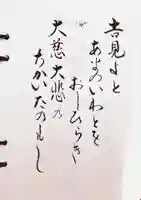 吉見よと
あまのいわとを
が
おしひらき
大慈大悲の
ちかいたのもし